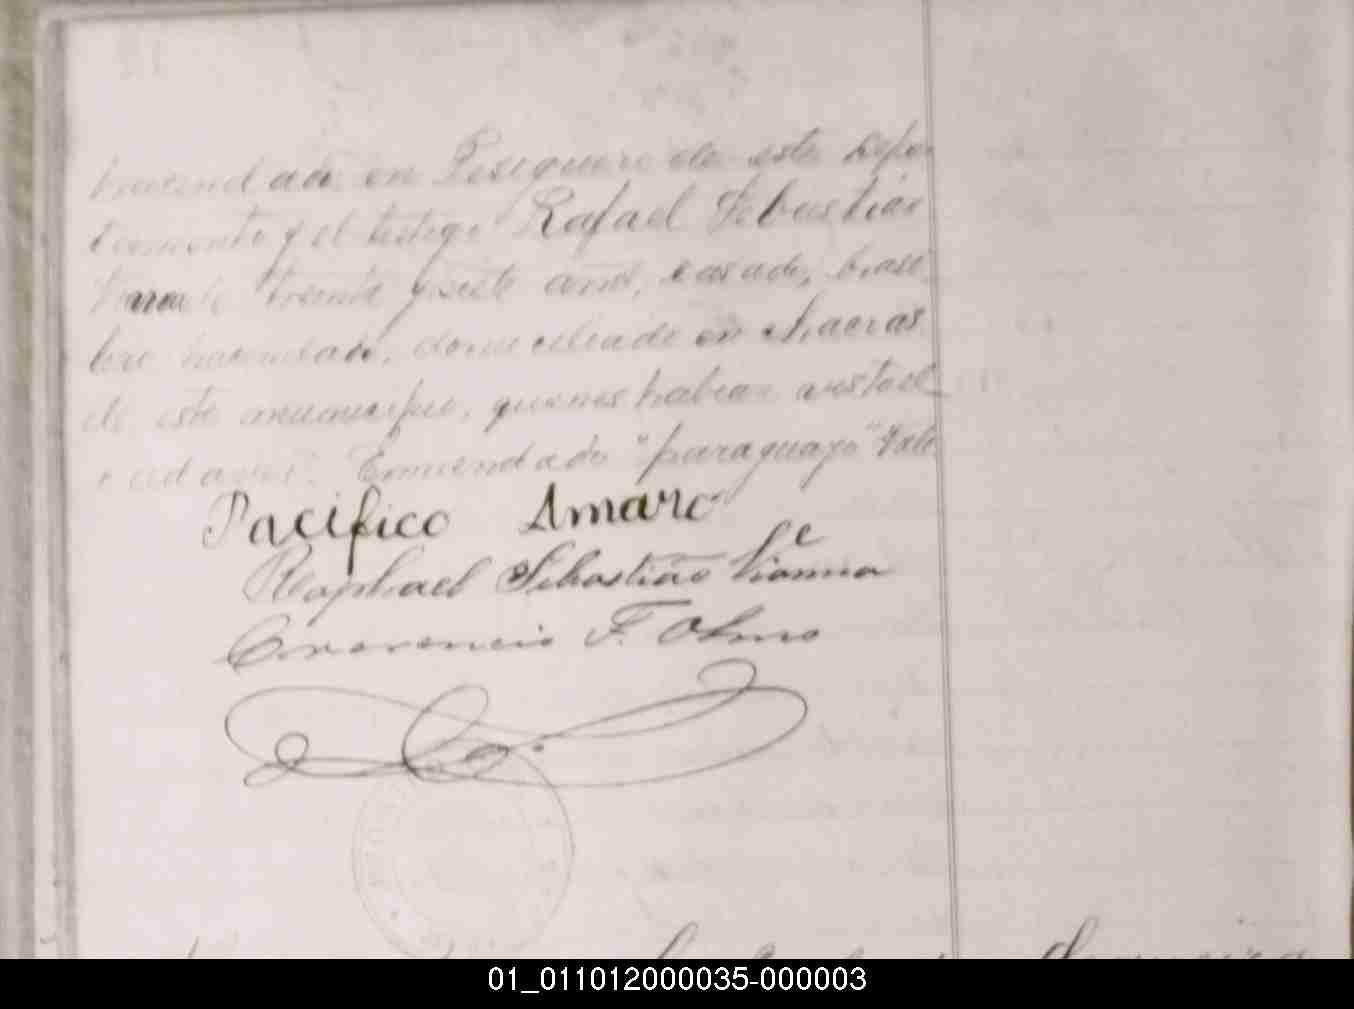 hacendado en Pesiguero de este depar
tamento y el testigo Rafael Sebastian
Viana de treinta y siete años, casado, brasi
lero hacendado, domiciliado en Chacras
de este municipio, quienes habian visto el
cadaver. Enmendado "paraguayo" Vale
Pacifico Amaro
Raphael Sebastião Vianna
F. Olmo
01_011012000035-000003